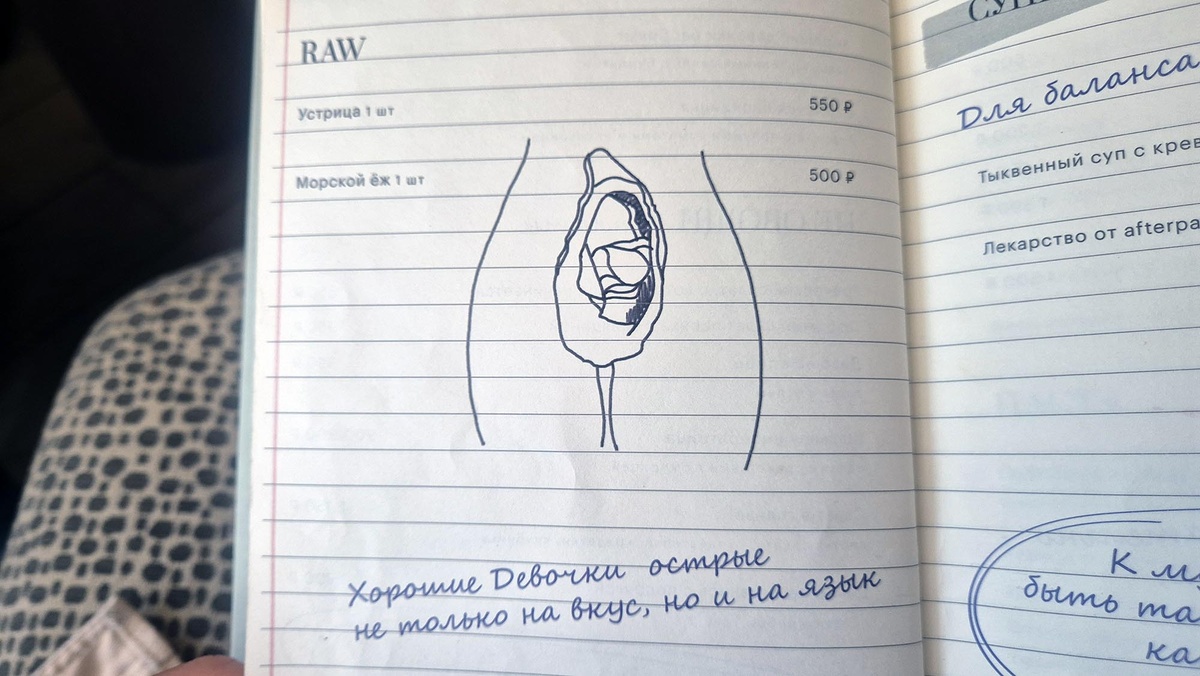 RAW
Устрица 1 шт 550 ₽
Морской ёж 1 шт 500 ₽
Хорошие Девочки острые
не только на вкус, но и на язык
Для баланса
Тыквенный суп с
Лекарство от
К
быть